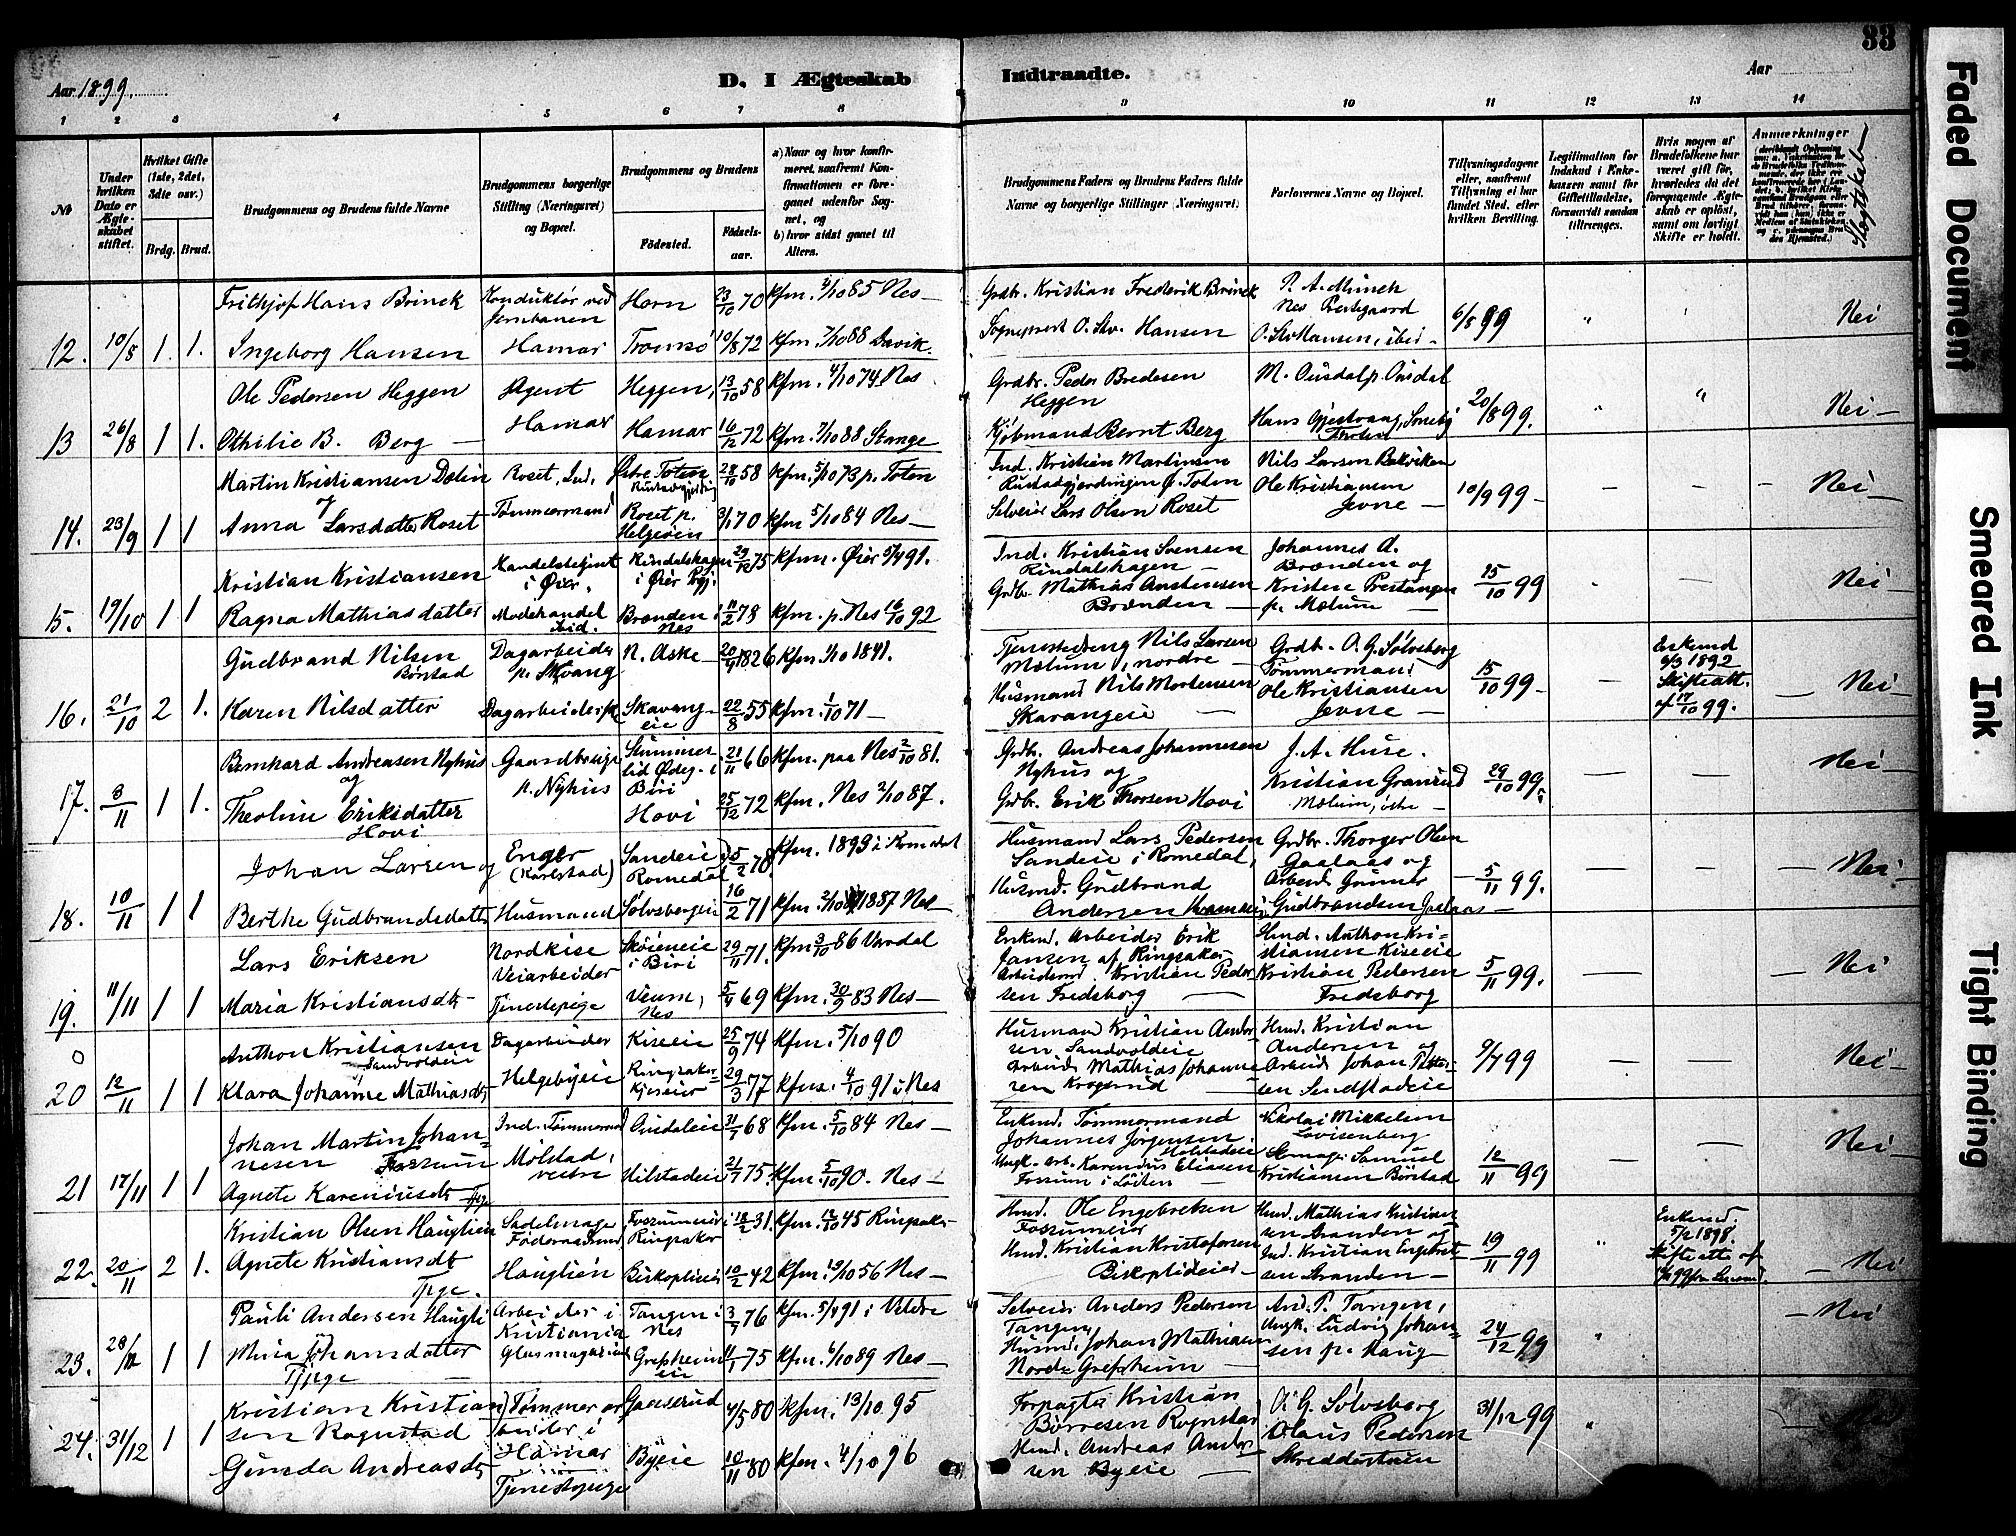 Aar 1899.
D. I Ægteskab
Indtraadte.
Aar
33
1 2 3 4 5 6 7 8 9 10 11 12 13 14
№
Under hvilken Dato er Ægteskabet stiftet.
Hvilket Gifte (1ste, 2det, 3dte osv.)
Brdg.
Brud.
Brudgommens og Brudens fulde Navne
Brudgommens borgerlige Stilling (Næringsvei) og Bopæl.
Brudgommens og Brudens
Födested.
Födselsaar.
a) Naar og hvor konfirmeret, saafremt Konfirmationen er foregaaet udenfor Sognet, og
b) hvor sidst gaaet til Alters.
Brudgommens Faders og Brudens Faders fulde Navne og borgerlige Stillinger (Næringsvei).
Forlovernes Navne og Bopæl.
Tillysningsdagene eller, saafremt Tillysning ei har fundet Sted, efter hvilken Bevilling.
Legitimation for Indskud i Enkekassen samt for Giftetilladelse, forsaavidt saadan tiltrænges.
Hvis nogen af Brudefolkene har været gift för, hvorledes da det foregaaende Ægteskab er oplöst, samt om lovligt Skifte er holdt.
Anmærkninger
12. 10/8 1. 1.
Frithjof Hans Brinck
Ingeborg Hansen
Konduktör ved Jernbanen Hamar
Horn 23/10 70 kfm. 4/10 85 Nes
Tromsö 10/8 72 kfm. 7/10 88 Davik.
Grdbr. Kristian Frederik Brinck
Sogneprest O. Stv. Hansen
P. A. Munch
Nes Prestegaard
O. Stv. Hansen, ibid.
6/8 99
Nei
13 26/8 1 1.
Ole Pedersen Heggen
Othilie B. Berg
Agent Hamar
Heggen, 13/10 58 kfm. 4/10 74 Nes
Hamar 16/12 72 kfm. 7/10 88 Stange
Grdbr. Peder Bredesen Heggen
Kjöbmand Bernt Berg
M. Ousdal p. Ousdal
Hans Gjestvang,
20/8 99.
Nei
14. 23/9 1 1
Martin Kristiansen Dælin
Anna Larsdatter Roset
Roset, Ind. Tømmermand
Østre Toten 28/10 58 kfm. 5/10 73 p. Toten
Roset p. Helgøien 3/1 70 kfm 5/10 84 Nes
Ind. Kristian Martinsen
Rustadgjerdingen Ø. Toten
Selveier Lars Olsen Roset
Nils Larsen Bakviken
Ole Kristiansen Jevne
10/9 99
Nei
15. 19/10 1 1
Kristian Kristiansen
Ragna Mathiasdatter
Handelsbetjent i Øier.
Modehandel ibid.
Rindalshagen i Øier 29/12 75 kfm. Øier 5/7 91.
Brænden i Nes 11/2 78 kfm. p. Nes 16/10 92
Ind. Kristian Svensen Rindalshagen
Grdbr. Mathias Anstensen Brænden
Johannes A. Brænden og
Kristen Prestangen p. Mælum
15/10 99
Nei
16. 21/10 2 1.
Gudbrand Nilsen Börstad
Karen Nilsdatter
Dagarbeider p. Skvang
Dagarbeiderske
N. Aske 20/9 1826 kfm. 1/10 1841.
Skavangeie 22/8 55 kfm. 1/10 71
Tjenestedreng Nils Larsen Mælum, nordre
Husmand Nils Mortensen Skavangeie
Grdbr. O. G. Sølvsberg
Tömmermand Ole Kristiansen Jevne
15/10 99
Enkemd 1892
Skifteatt. af 17/10 99.
Nei
17. 3/11 1 1.
Bernhard Andreasen Nyhus og
Theoline Eriksdatter Hovi
Gaardbruger n. Nyhus
Biri 21/11 66 kfm. paa Nes 2/10 81.
Hovi 25/12 72 kfm. Nes 2/10 87.
Grdbr. Andreas Johannesen Nyhus og
Grdbr. Erik Thorsen Hovi
J. A. Huse.
Kristian Granrud
Mælum, östre
29/10 99
Nei
18. 10/11 1 1
Johan Larsen og
Berthe Gudbrandsdatter
Enger (Karlstad)
Husmand
Sandeie Romedal 5/2 70 kfm. 1893 i Romedal
Sølvsbergeie 16/2 71 kfm 2/10 1887 Nes
Husmand Lars Pedersen Sandeie i Romedal,
Husmd. Gudbrand Andersen
Grdbr. Thorger Olsen Gaalaas og
Arbeid. Gunner Gudbrandsen Gaalaas
5/11 99.
Nei
19. 11/11 1 1
Lars Eriksen
Maria Kristiansdt.
Nordkise Veiarbeider
Tjenestepige
Skøieneie i Biri 29/11 71. kfm 3/10 86 Vardal
Veum, Nes 5/4 69 kfm. 30/9 83 Nes
Enkmd. Arbeider Erik Jansen af Ringsaker
Arbeidsmd Kristian Pedersen Fredsborg
Hmd. Anthon Kristiansen Kiseeie
Kristian Pedersen Fredsborg
5/11 99.
Nei
20 12/11 1 1
Anthon Kristiansen Sandvoldeie
Klara Johanne Mathiasdt.
Dagarbeider
Helgebyeie
Kiseeie 25/9 74 kfm. 5/10 90
Ringsaker 29/3 77 kfm. 4/10 91 i Nes
Husmand Kristian Andersen Sandvoldeie
Arbeid. Mathias Johannesen Krogerud
Hmd. Kristian Andersen og
Arbeid Johan Pettersen Sundstadeie
9/7 99
Nei
21 17/11 1 1
Johan Martin Johannesen Fossum
Agnete Kareniusdt. Tjpg.
Ind. Tömmermand
Mølstad, vestre
Ousdaleie 31/7 68 kfm. 5/10 84 Nes
Hilstadeie 21/7 75. kfm. 5/10 90. Nes
Enkmd. Tömmermand Johannes Jørgensen
Ungk. Arb. Karenius Eliasen Fossum i Löiten
Nikolai Mikkelsen Lovisenberg
Skomager Samuel Kristiansen Börstad
12/11 99
Nei
22. 20/11 2 1.
Kristian Olsen Hauglien
Agnete Kristiansdt. Tjpge.
Sadelmager Föderaadsmd. Hauglien
Fossumeie i Ringsaker 18/2 31. kfm. 12/10 45 Ringsaker
Biskoplieeie 10/2 42 kfm. 19/10 56 Nes
Hmd. Ole Engebretsen Fossumeie
Hmd. Kristian Kristofersen Biskoplideie
Hmd. Mathias Kristiansen Stranden og
Ind. Kristian Engebretsen Stranden
19/11 99
Enkemd. 5/2 1898.
Skifteatt. af
Nei
23. 28/12 1 1
Pauli Andersen Haugli
Mina Johansdatter Tjpge
Arbeider i Kristiania Glasmagasin
Tangen i Nes 3/7 76 kfm. 5/7 91 i Veldre
Grefsheimeie 11/1 75 kfm. 6/10 89 Nes
Selveier Anders Pedersen Tangen
Husmd. Johan Mathiasen Nordre Grefsheim
And. P. Tangen,
Ungk. Ludvig Johansen p. Haug
24/12 99
Nei
24. 31/12 1 1
Kristian Kristiansen Rognstad
Gunda Andreasdt.
Tømmerarbeider i Hamar
Tjenestepige
Gaaserud 4/5 80 kfm. 13/10 95
Byeie 10/11 80 kfm. 4/10 96
Forpagter Kristian Börresen Rognstad
Hmd. Andreas Andersen Byeie
O. G. Sølvsberg
Olaus Pedersen Skreddertuen
31/12 99
Faded Document
Smeared Ink
Tight Binding